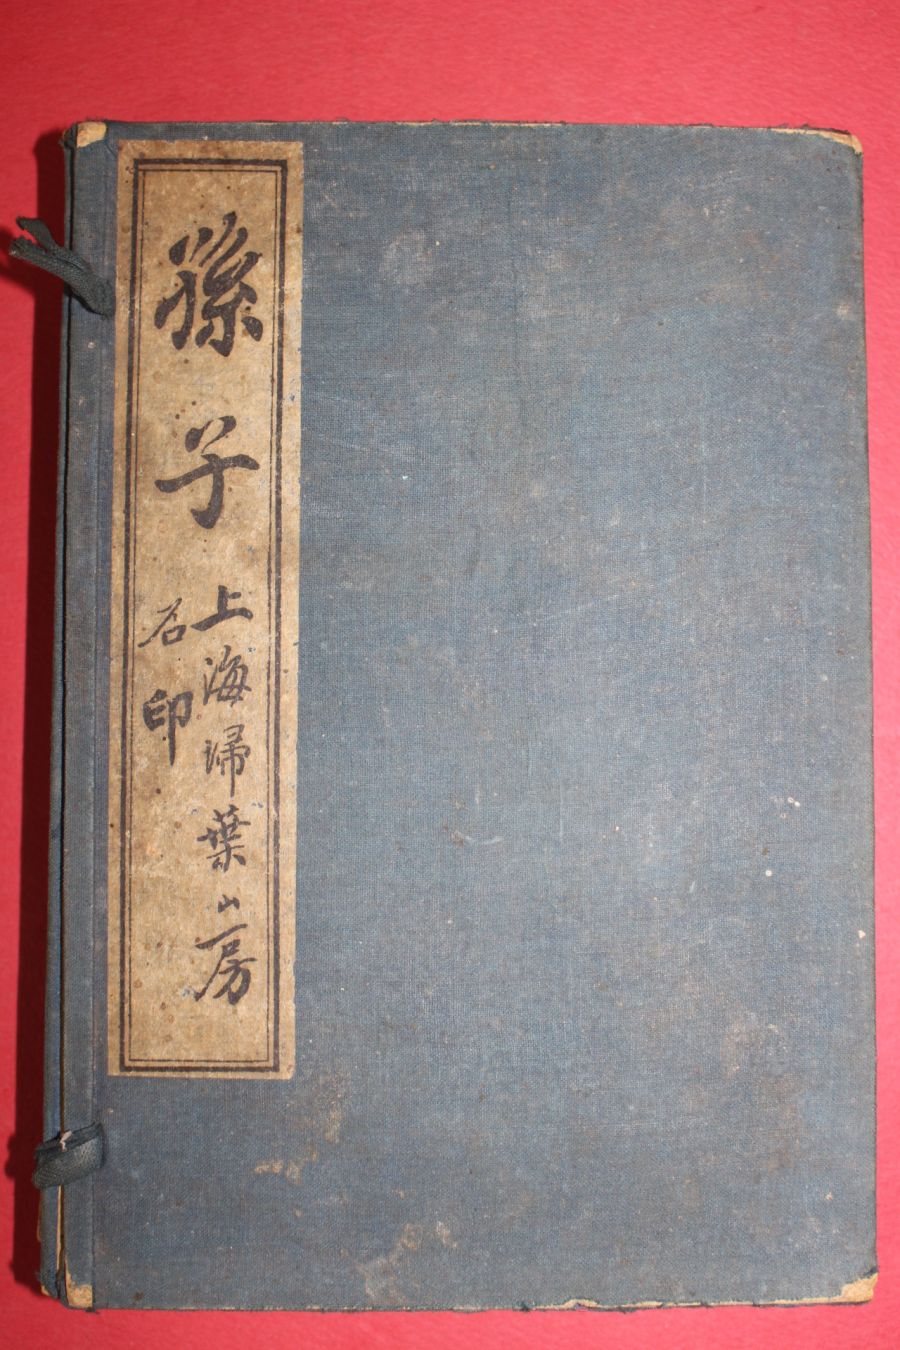 孫子
上海掃葉山房
石印